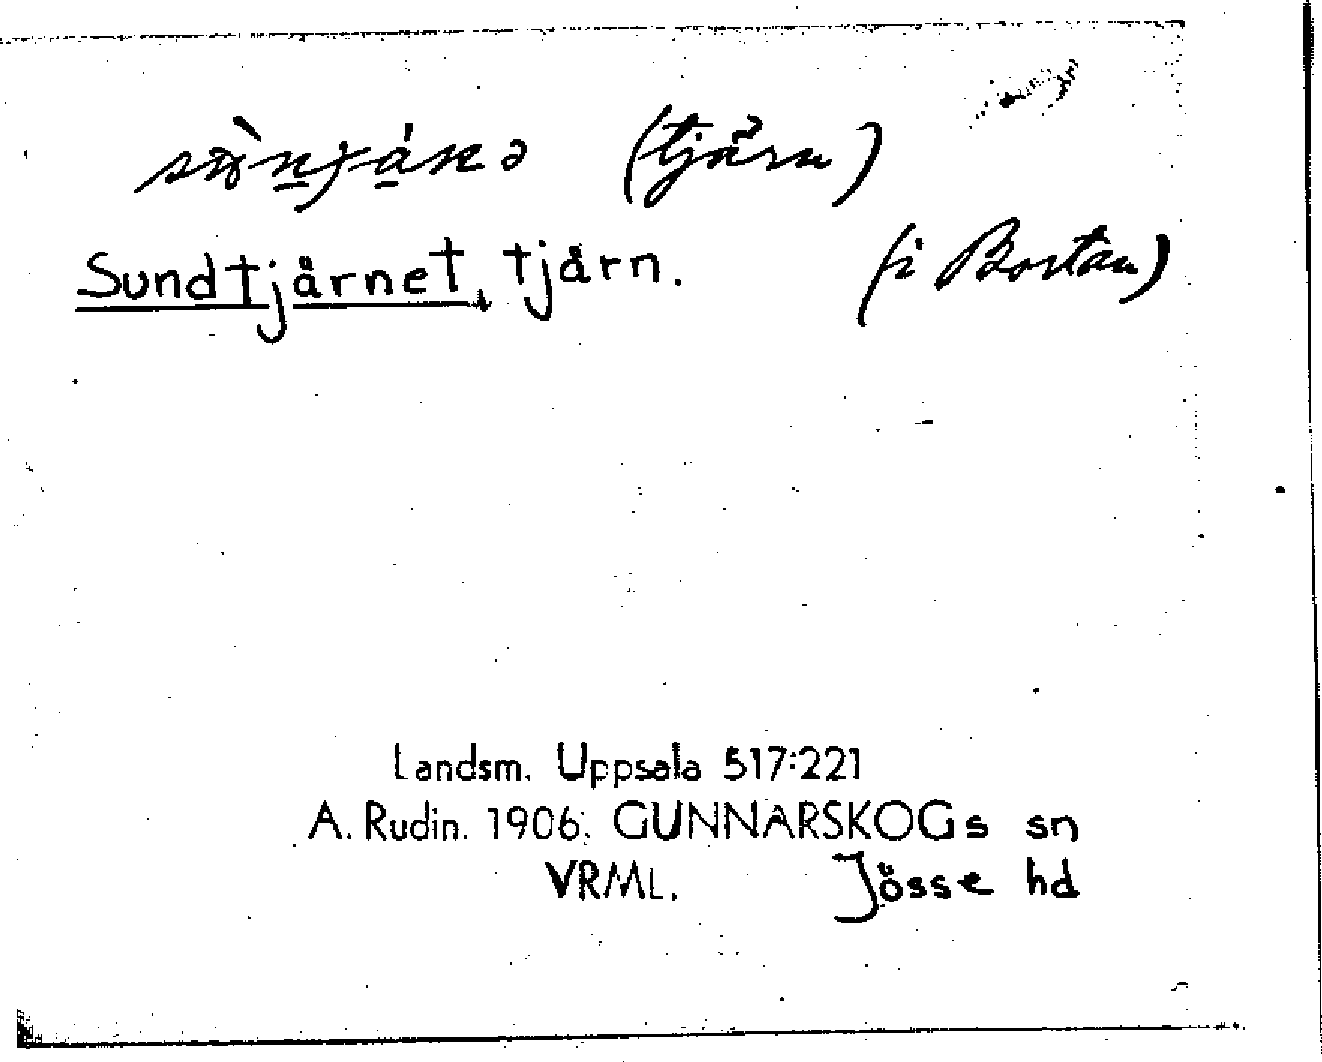 (tjärn)
Sundtjärnet, tjärn. (i Bortan)
Landsm. Uppsala 517:221
A. Rudin. 1906. GUNNARSKOGs sn
VRML. Jösse hd